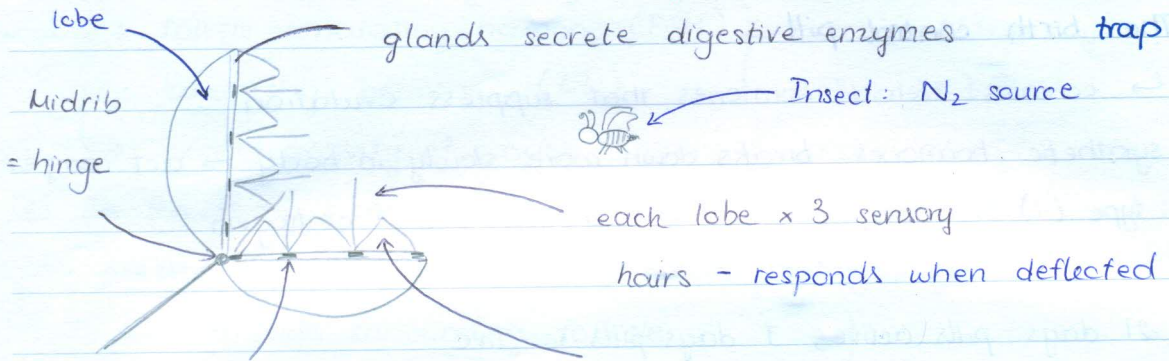 lobe
glands secrete digestive enzymes trap
Midrib
= hinge
Insect: N₂ source
each lobe × 3 sensory
hairs - responds when deflected